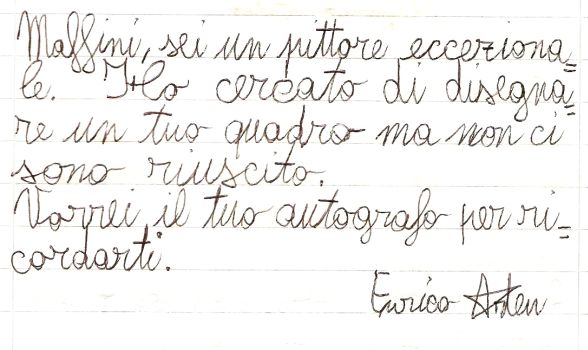 Maffini, sei un pittore ecceziona=
le. Ho cercato di disegna=
re un tuo quadro ma non ci
sono riuscito.
Vorrei il tuo autografo per ri=
cordarti.
Enrico